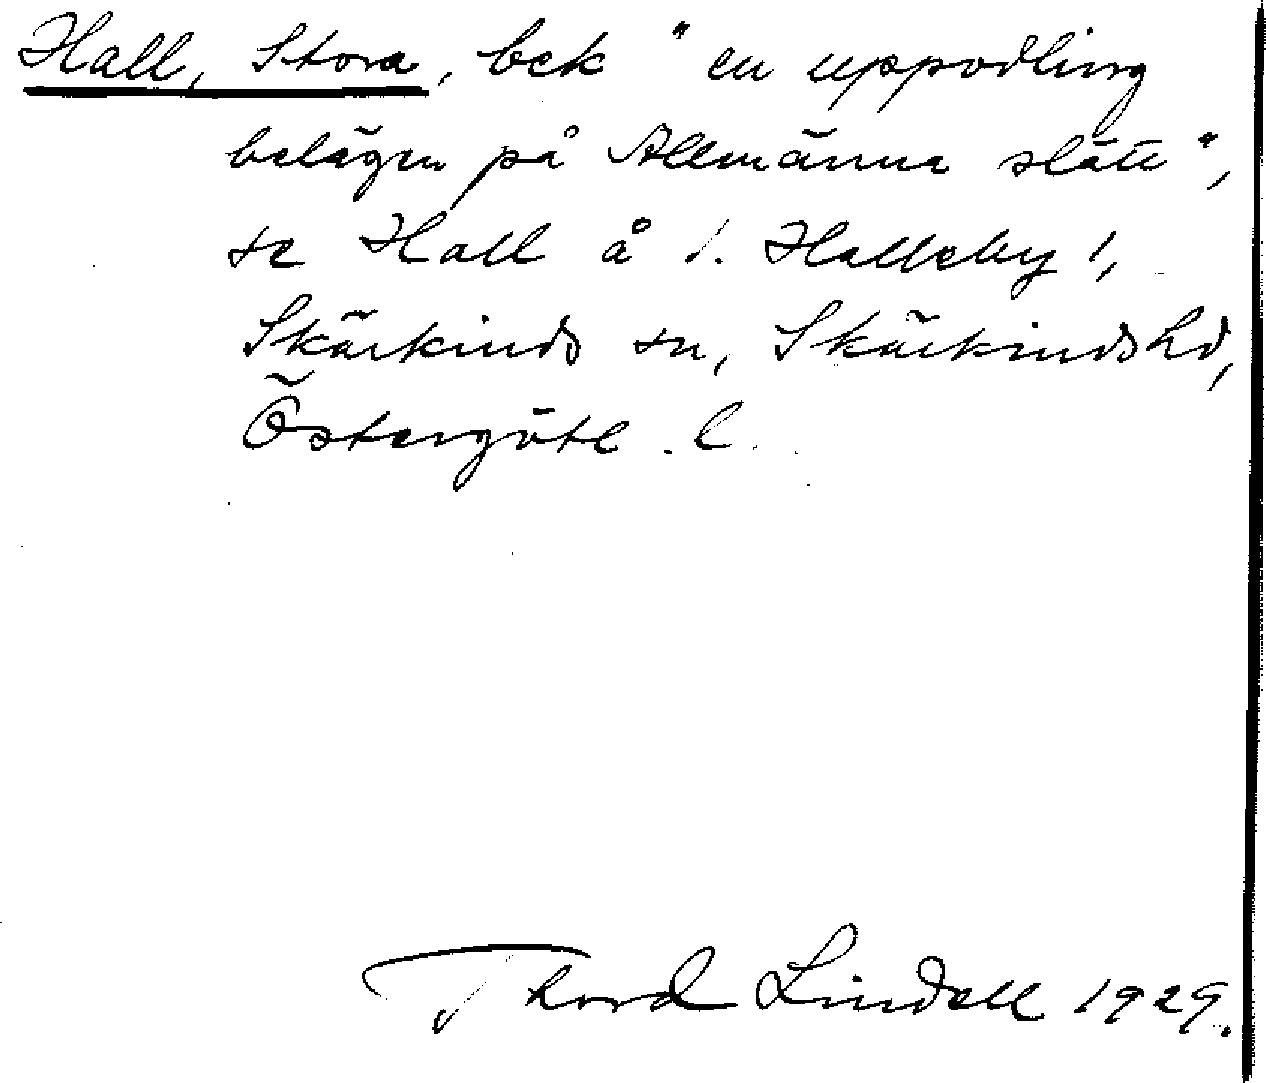 Hall, Stora, bek "en uppodling
belägen på Allmänna slätt",
se Hall å 1. Halleby 1,
Skärkinds sn, Skärkinds hd,
Östergötl. l.
Thord Lindell 1929.